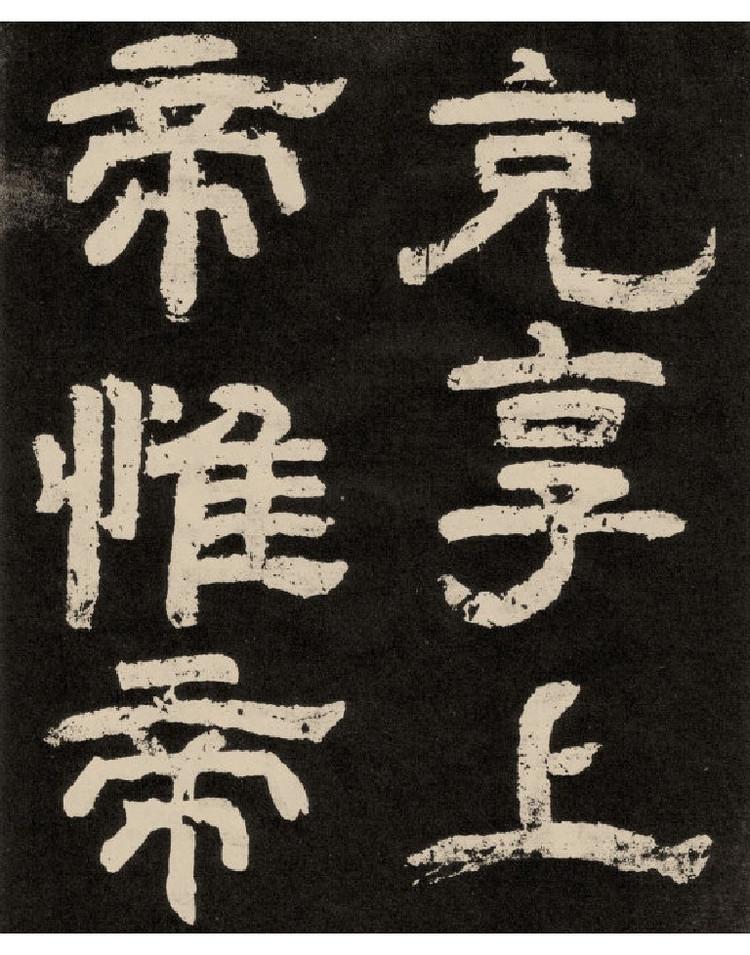 克享上
帝惟帝